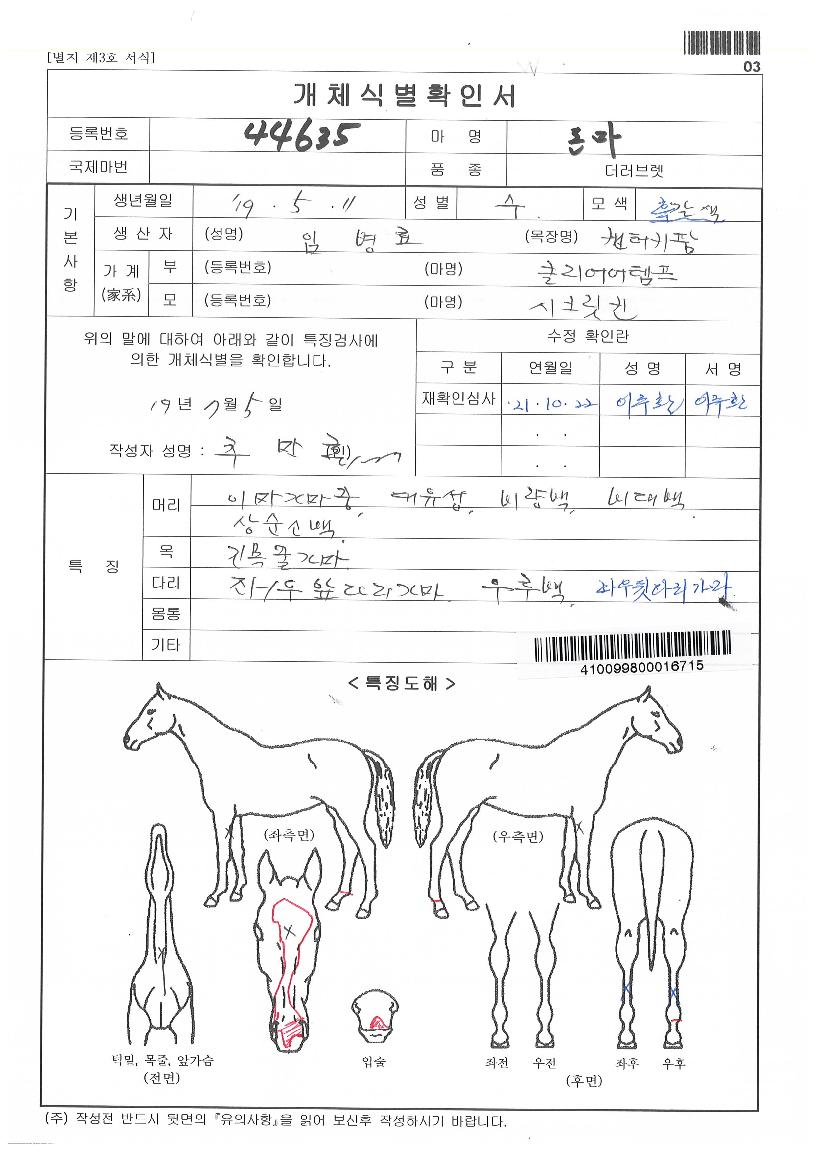 [별지 제3호 서식]
03
개체식별확인서
등록번호 44635 마 명 돈마
국제마번 품 종 더러브렛
기본사항
생년월일 '19 . 5 . 11 성 별 수 모 색 흑갈색
생 산 자 (성명) 임 병 효 (목장명) 챈터키팜
가 계 (家系) 부 (등록번호) (마명) 클리어어템프
모 (등록번호) (마명) 시크릿진
위의 말에 대하여 아래와 같이 특징검사에
의한 개체식별을 확인합니다.
19 년 7 월 5 일
작성자 성명 : 추 만 (인)
수정 확인란
구 분 연월일 성 명 서 명
재확인심사 '21 . 10 . 22
. .
. .
특 징
머리 이마가마중, 대유성, 비량백, 비대백,
상순소백
목 긴목줄가마
다리 좌우앞다리가마 우후백, 좌우뒷다리가마
몸통
기타
410099800016715
< 특징도해 >
(좌측면) (우측면)
턱밑, 목줄, 앞가슴
(전면)
입술
좌전 우전 좌후 우후
(후면)
(주) 작성전 반드시 뒷면의 『유의사항』을 읽어 보신후 작성하시기 바랍니다.